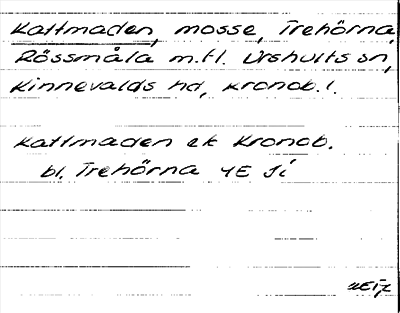 Kattmaden, mosse, Trehörna,
Rössmåla m.fl. Urshults sn,
Kinnevalds hd, Kronob. l.
Kattmaden ek Kronob.
bl. Trehörna 4E